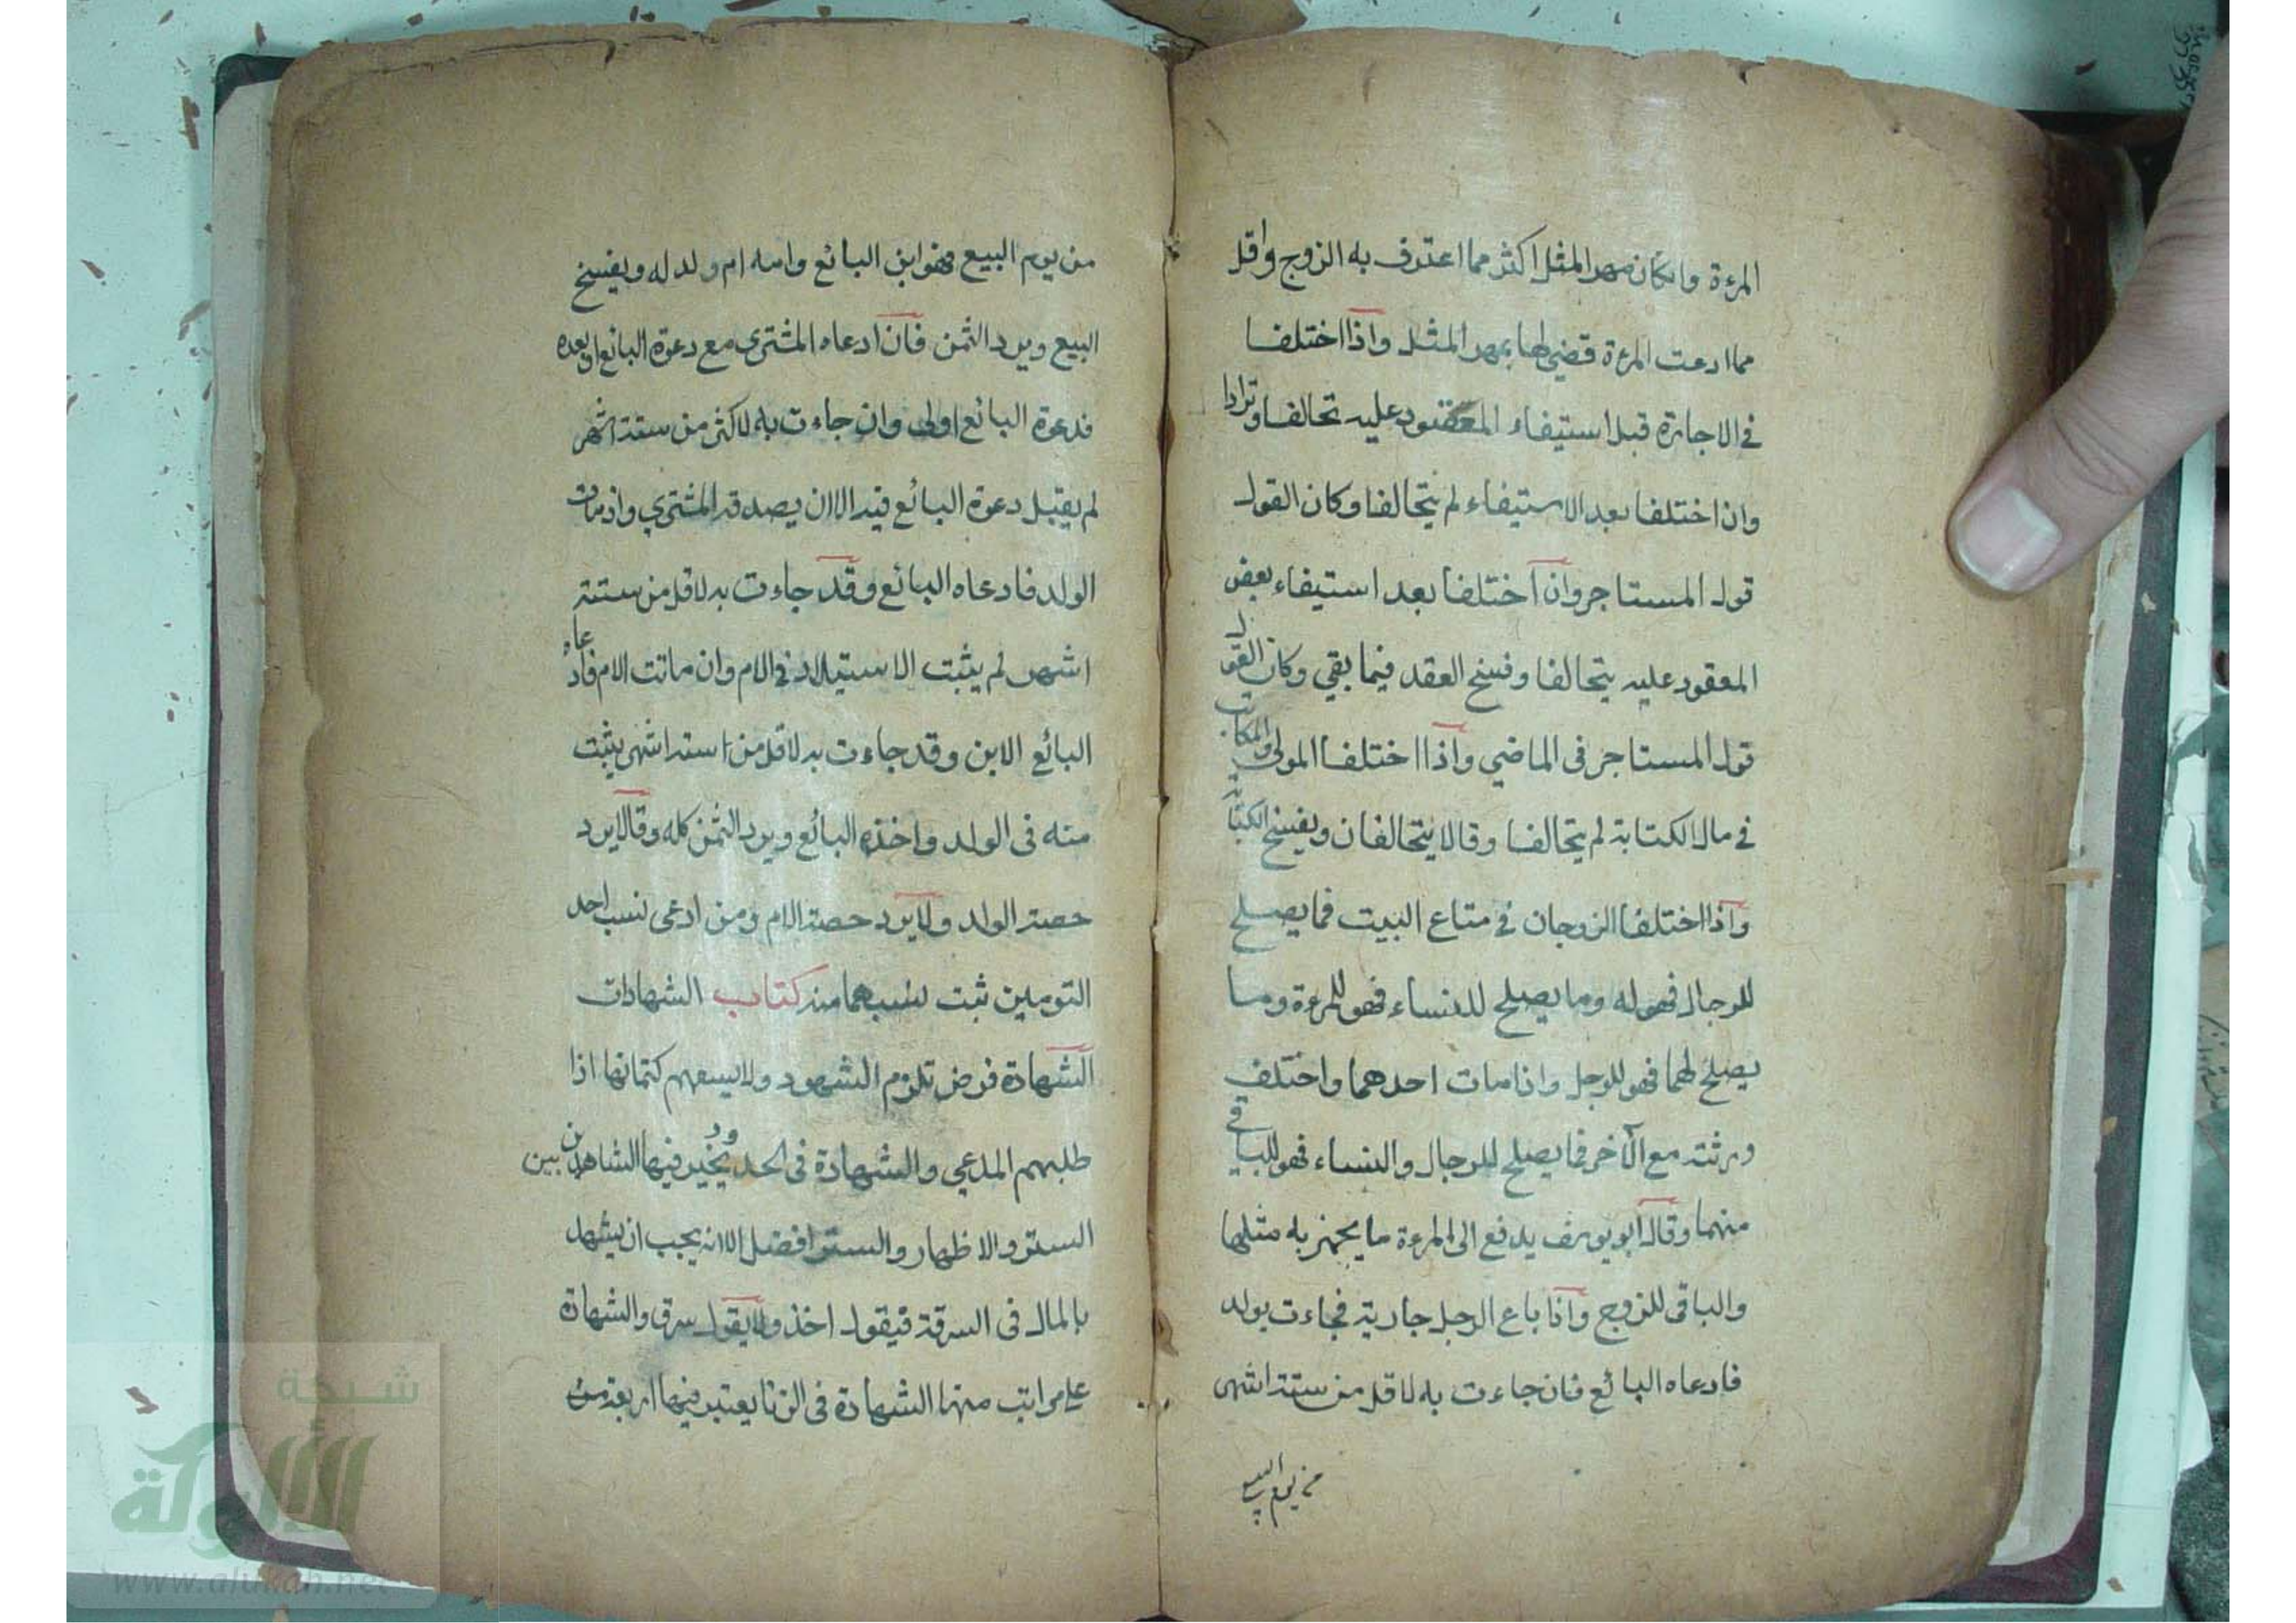 المرءة وان كان مهر المثل اكثر مما اعترف به الزوج واقل
مما ادعت المرءة قضي لها بمهر المثل واذا اختلفا
في الاجارة قبل استيفاء المعقود عليه تحالفا وترادا
وان اختلفا بعد الاستيفاء لم يتحالفا وكان القول
قول المستاجر وان اختلفا بعد استيفاء بعض
المعقود عليه يتحالفا وفسخ العقد فيما بقي وكان القول
قول المستاجر في الماضي واذا اختلفا المولى والمكاتب
في مال الكتابة لم يتحالفا وقالا يتحالفان ويفسخ الكتابة
واذا اختلفا الزوجان في متاع البيت فما يصلح
للرجال فهو له وما يصلح للنساء فهو للمرءة وما
يصلح لهما فهو للرجل واذا مات احدهما واختلف
ورثته مع الآخر فما يصلح للرجال والنساء فهو للباقي
منهما وقال ابو يوسف يدفع الى المرءة ما يجهز به مثلها
والباقى للزوج واذا باع الرجل جارية فجاءت بولد
فادعاه البائع فان جاءت به لاقل من ستة اشهر
من يوم البيع
من يوم البيع فهو ابن البائع وامه ام ولد له ويفسخ
البيع ويرد الثمن فان ادعاه المشترى مع دعوة البائع او بعده
فدعوة البائع اولى وان جاءت به لاكثر من ستة اشهر
لم يقبل دعوة البائع فيه الا ان يصدقه المشتري واذ مات
الولد فادعاه البائع وقد جاءت به لاقل من ستة
اشهر لم يثبت الاستيلاد في الام وان ماتت الام فادعاه
البائع الابن وقد جاءت به لاقل من ستة اشهر يثبت
منه فى الولد واخذه البائع ويرد الثمن كله وقالا يرد
حصة الولد ولا يرد حصة الام ومن ادعى نسب احد
التومين ثبت نسبهما منه كتاب الشهادات
الشهادة فرض تلزم الشهود ولا يسعهم كتمانها اذا
طلبهم المدعي والشهادة فى الحدود يخير فيها الشاهدين بين
الستر والاظهار والستر افضل الا انه يجب ان يشهد
بالمال فى السرقة فيقول اخذ ولا يقول سرق والشهادة
على مراتب منها الشهادة فى الزنا يعتبر فيها اربعة من
شبكة
الألوكة
www.alukah.net